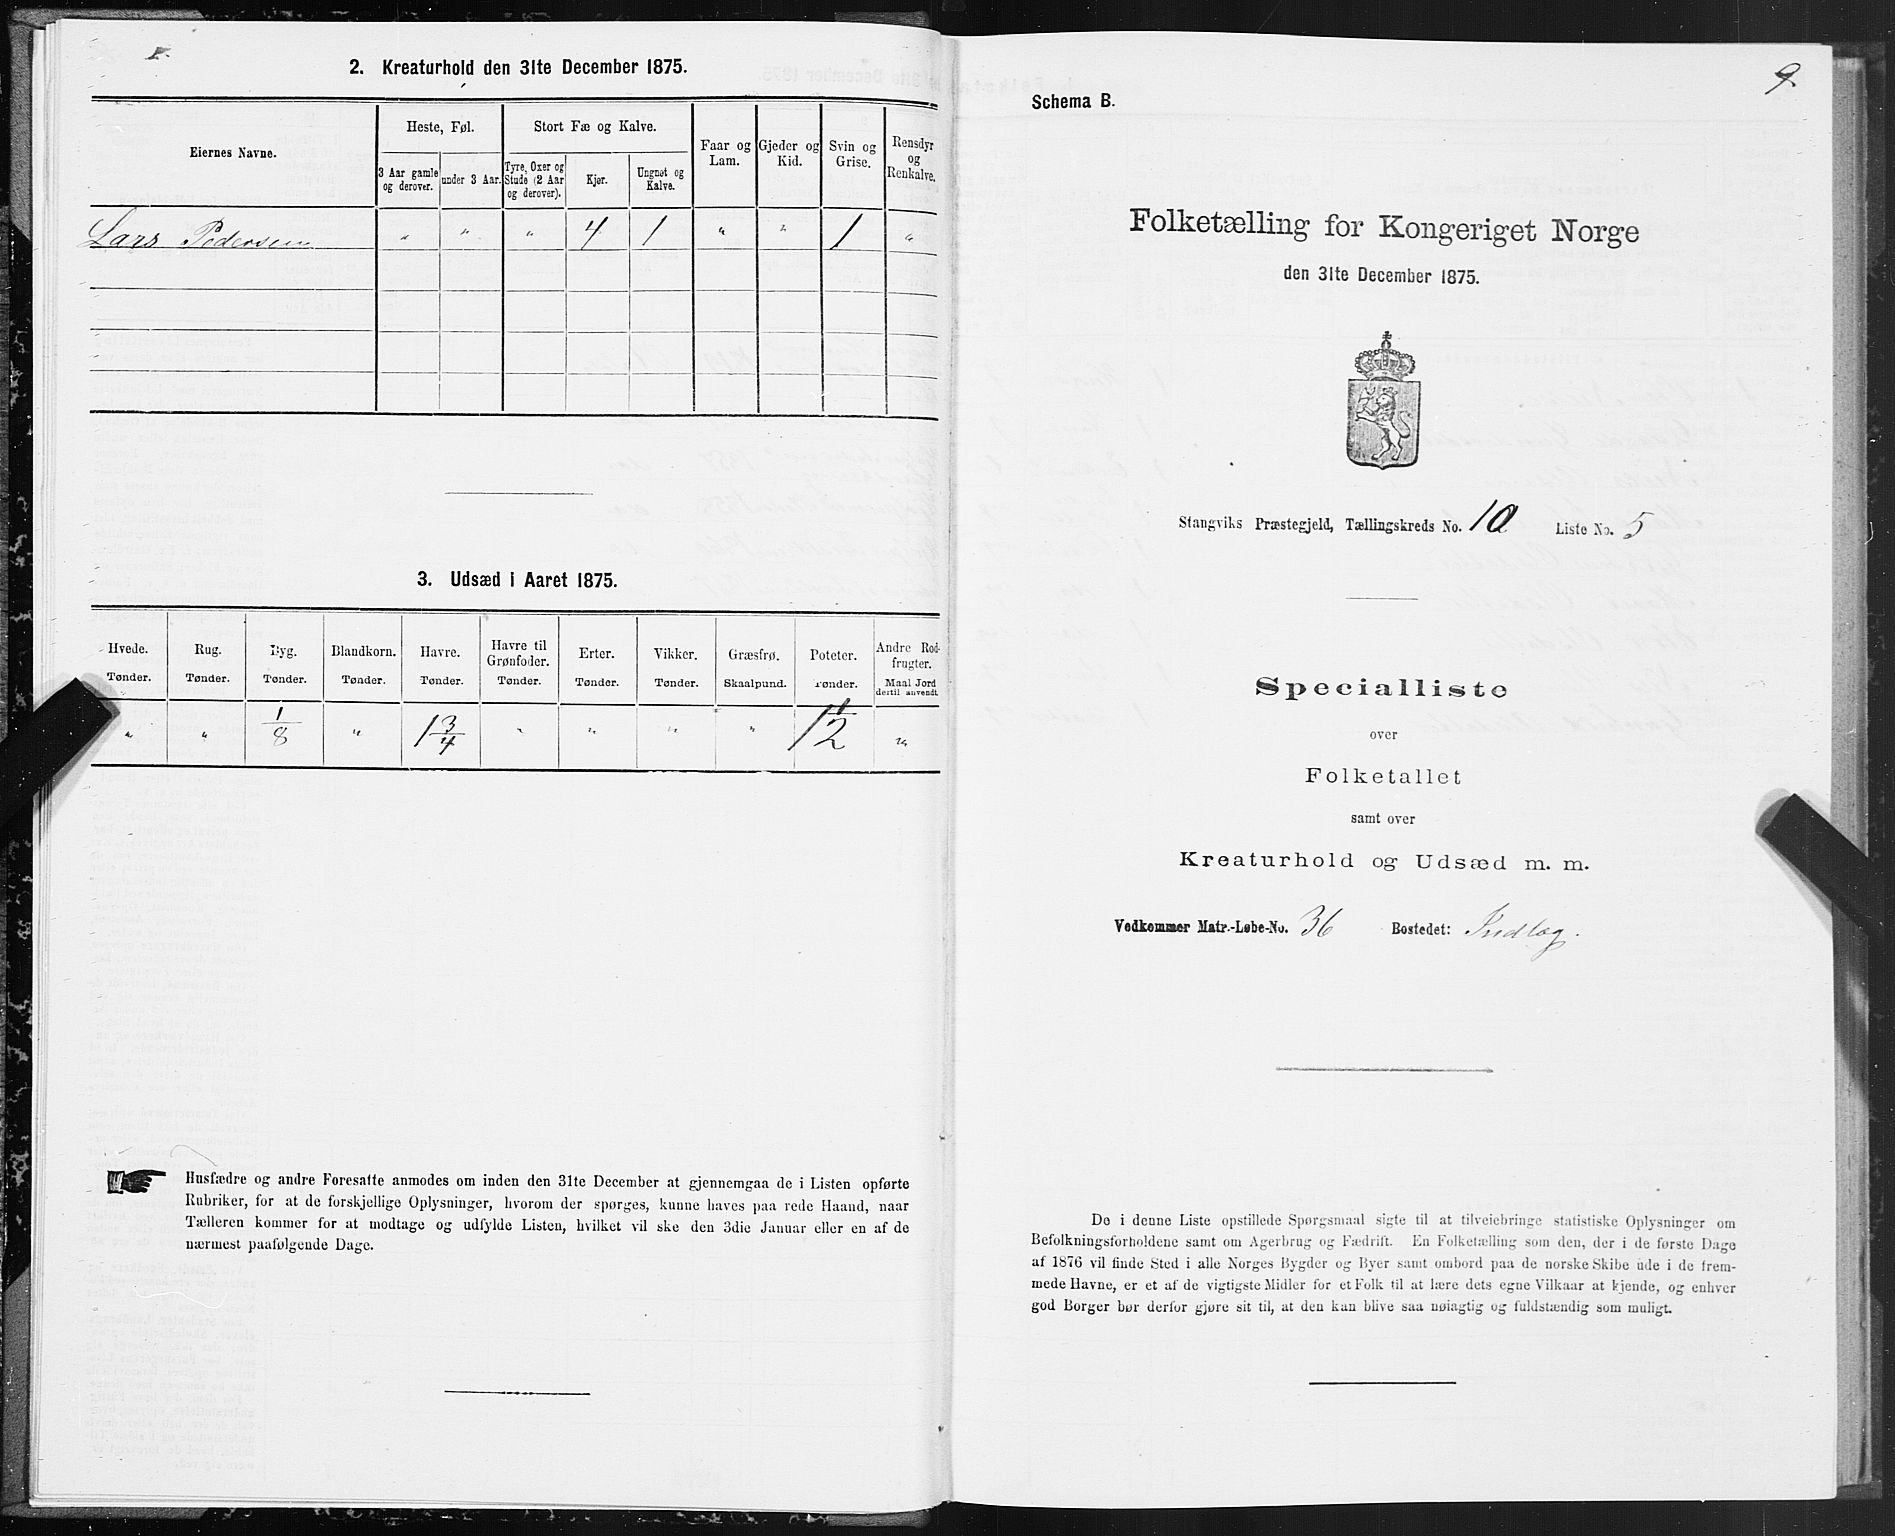 2. Kreaturhold den 31te December 1875.
Eiernes Navne.
Heste, Føl.
Stort Fæ og Kalve.
Faar og Lam.
Gjeder og Kid.
Svin og Grise.
Rensdyr og Renkalve.
3 Aar gamle og derover.
under 3 Aar.
Tyre, Oxer og Stude (2 Aar og derover).
Kjør.
Ungnøt og Kalve.
Lars Pedersen " " " 4 1 " " 1 "
3. Udsæd i Aaret 1875.
Hvede. Rug. Byg. Blandkorn. Havre. Havre til Grønfoder. Erter. Vikker. Græsfrø. Poteter. Andre Rodfrugter.
Tønder. Tønder. Tønder. Tønder. Tønder. Tønder. Tønder. Tønder. Skaalpund. Tønder. Maal Jord dertil anvendt.
" " 1/8 " 1 3/4 " " " " 1 1/2 "
Husfædre og andre Foresatte anmodes om inden den 31te December at gjennemgaa de i Listen opførte
Rubriker, for at de forskjellige Oplysninger, hvorom der spørges, kunne haves paa rede Haand, naar
Tælleren kommer for at modtage og udfylde Listen, hvilket vil ske den 3die Januar eller en af de
nærmest paafølgende Dage.
9
Schema B.
Folketælling for Kongeriget Norge
den 31te December 1875.
Stangviks Præstegjeld, Tællingskreds No. 10 Liste No. 5
Specialliste
over
Folketallet
samt over
Kreaturhold og Udsæd m. m.
Vedkommer Matr.-Løbe-No. 36 Bostedet: Indlæg.
De i denne Liste opstillede Spørgsmaal sigte til at tilveiebringe statistiske Oplysninger om
Befolkningsforholdene samt om Agerbrug og Fædrift. En Folketælling som den, der i de første Dage
af 1876 vil finde Sted i alle Norges Bygder og Byer samt ombord paa de norske Skibe ude i de frem-
mede Havne, er et af de vigtigste Midler for et Folk til at lære dets egne Vilkaar at kjende, og enhver
god Borger bør derfor gjøre sit til, at den kan blive saa nøiagtig og fuldstændig som muligt.